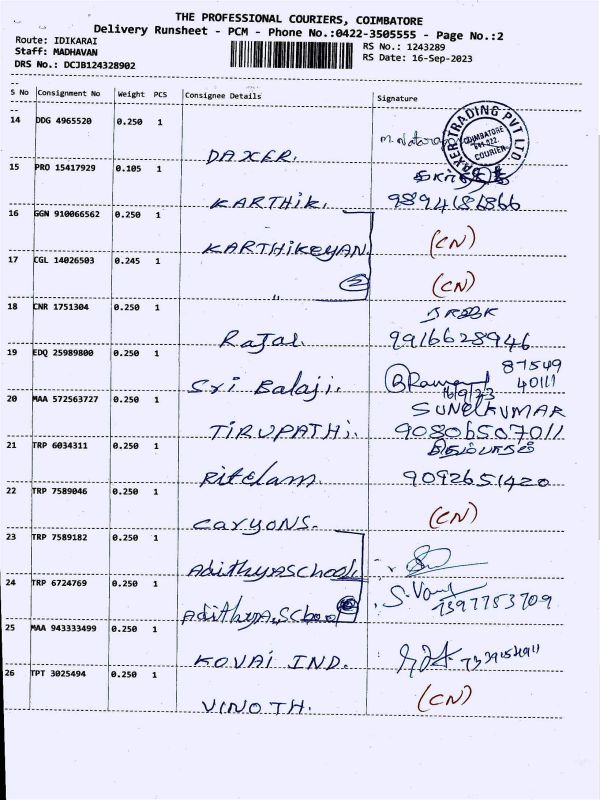 THE PROFESSIONAL COURIERS, COIMBATORE
Delivery Runsheet - PCM - Phone No.:0422-3505555 - Page No.:2
Route: IDIKARAI
Staff: MADHAVAN
DRS No.: DCJB124328902
RS No.: 1243289
RS Date: 16-Sep-2023
S No Consignment No Weight PCS Consignee Details Signature
DAXER TRADING PVT LTD.
COIMBATORE
641-022.
COURIER
14 DDG 4965520 0.250 1
DAXER.
15 PRO 15417929 0.105 1
KARTHIK. 9894186866
16 GGN 910066562 0.250 1
KARTHIKEYAN. (CN)
17 CGL 14026503 0.245 1
,, (2) (CN)
18 CNR 1751304 0.250 1
9916628946
19 EDQ 25989800 0.250 1
87549
40111
Sri Balaji. 16/9/23
20 MAA 572563727 0.250 1 SUNILKUMAR
TIRUPATHi. 90806507011
21 TRP 6034311 0.250 1
9092651420
22 TRP 7589046 0.250 1
CARYONS. (CN)
23 TRP 7589182 0.250 1
AdithyA School.
24 TRP 6724769 0.250 1
AdithyA School 7397753709
25 MAA 943333499 0.250 1
KOVAI IND.
26 TPT 3025494 0.250 1
VINOTH. (CN)